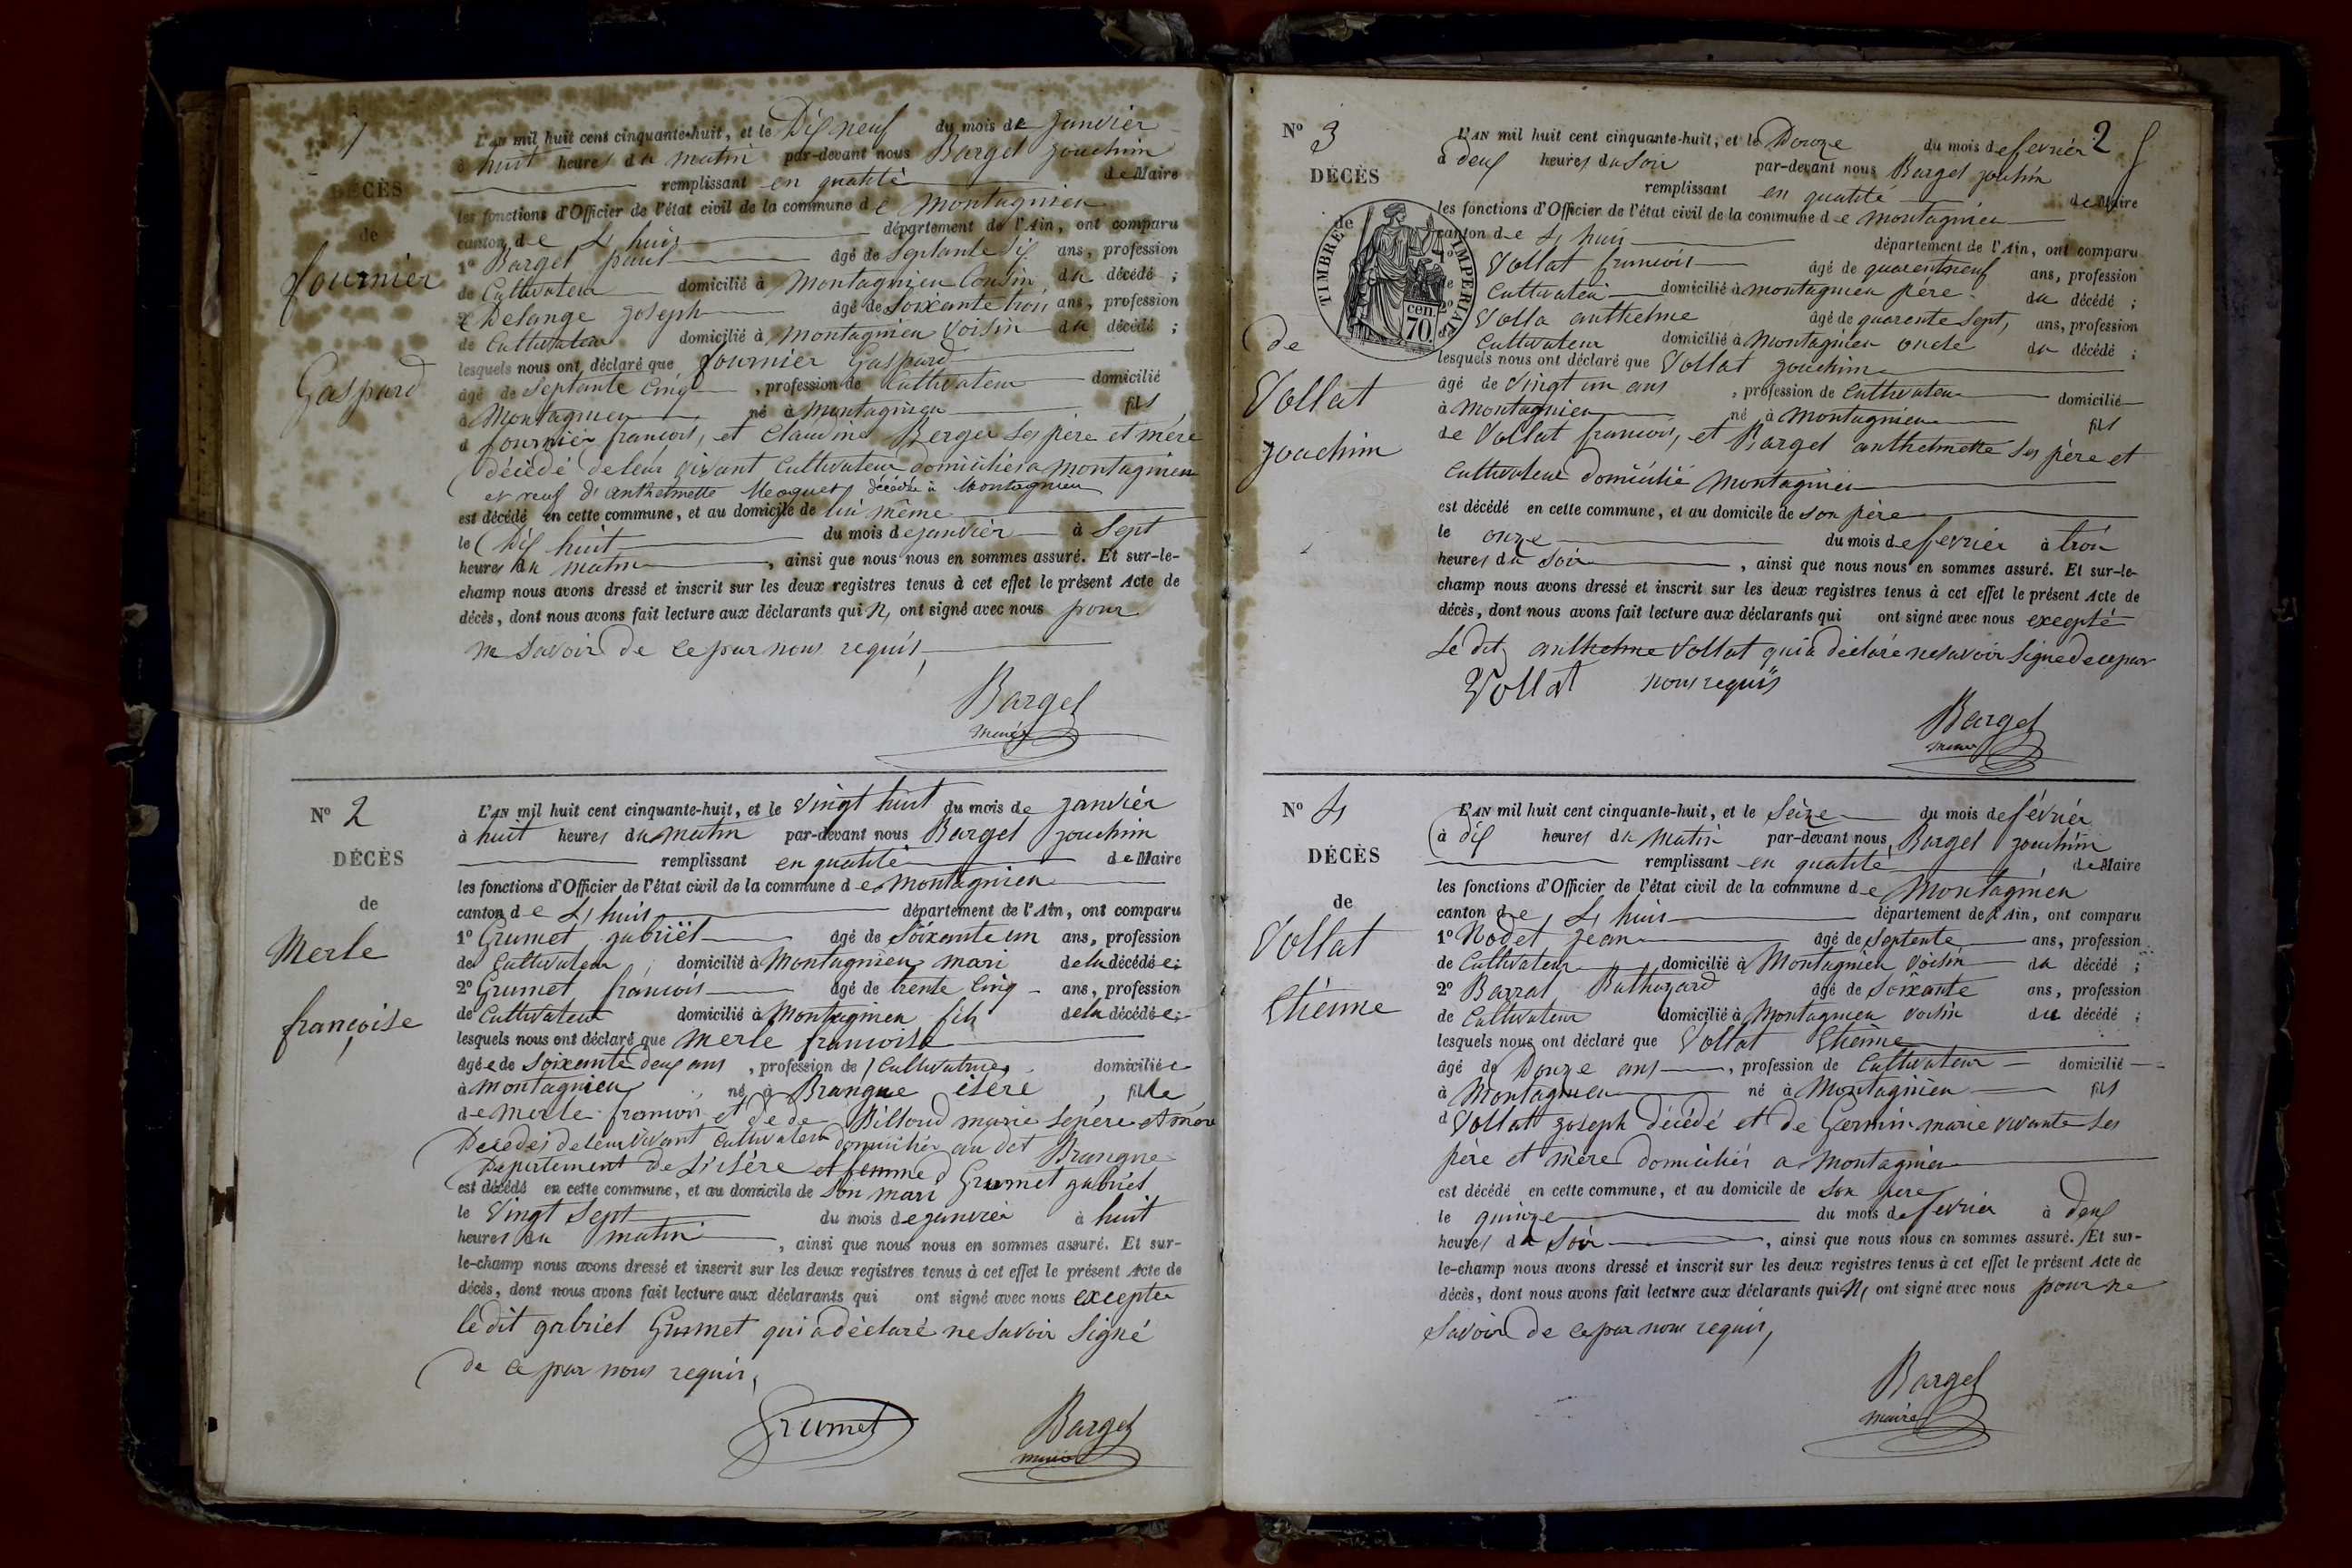 1
DÉCÈS
de
fournier
Gaspard
L'AN mil huit cent cinquante-huit, et le Dix neuf du mois de janvier
à huit heures du matin par-devant nous Barget joachim
remplissant en qualité de Maire
les fonctions d'Officier de l'état civil de la commune de Montagnieu
canton de L huis département de l'Ain, ont comparu
1° Barget paul âgé de Septante Dix ans, profession
de Cultivateur domicilié à Montagnieu Cousin du décédé ;
2° Delange joseph âgé de soixante trois ans, profession
de Cultivateur domicilié à Montagnieu Voisin du décédé ;
lesquels nous ont déclaré que fournier Gaspard
âgé de Septante Cinq , profession de Cultivateur domicilié
à Montagnieu né à Montagnieu fils
d fournier francois, et Claudine Berger Ses père et mère
décédé de leur vivant Cultivateur domiciliés a Montagnieu
et veuf d'anthelmette Meoquet, décédée à Montagnieu
est décédé en cette commune, et au domicile de lui même
le Dix huit du mois de janvier à Sept
heures du matin , ainsi que nous nous en sommes assuré. Et sur-le-
champ nous avons dressé et inscrit sur les deux registres tenus à cet effet le présent Acte de
décès, dont nous avons fait lecture aux déclarants qui N, ont signé avec nous pour
ne Savoir de ce par nous requis,
Barget
maire
N° 2
DÉCÈS
de
Merle
françoise
L'AN mil huit cent cinquante-huit, et le Vingt huit du mois de janvier
à huit heures du matin par-devant nous Barget joachim
remplissant en qualité de Maire
les fonctions d'Officier de l'état civil de la commune de Montagnieu
canton de L huis département de l'Ain, ont comparu
1° Grumet gabriel âgé de Soixante un ans, profession
de Cultivateur domicilié à Montagnieu mari de la décédée ;
2° Grumet francois âgé de trente Cinq ans, profession
de Cultivateur domicilié à Montagnieu fils de la décédée ;
lesquels nous ont déclaré que Merle francoise
âgée de soixante deux ans , profession de Cultivatrice domiciliée
à Montagnieu né à Brangue isère , fille
de Merle francois et de de Billoud marie Se père et mère
Décédés de leur vivant Cultivateur domiciliés au dit Brangue
Département de L'isère et femme d
est décédé en cette commune, et au domicile de Son mari Grumet gabriel
le Vingt Sept du mois de janvier à huit
heures du matin , ainsi que nous nous en sommes assuré. Et sur-
le-champ nous avons dressé et inscrit sur les deux registres tenus à cet effet le présent Acte de
décès, dont nous avons fait lecture aux déclarants qui ont signé avec nous excepter
le dit gabriel Grumet qui a déclaré ne savoir Signé
de ce par nous requis,
Grumet
Barget
maire
2
N° 3
DÉCÈS
de
TIMBRE IMPÉRIAL
70 cen.
de
Vollat
joachim
L'AN mil huit cent cinquante-huit, et le Douze du mois de fevrier
à deux heures du Soir par-devant nous Barget joachim
remplissant en qualité de Maire
les fonctions d'Officier de l'état civil de la commune de Montagnieu
canton de L huis département de l'Ain, ont comparu
Vollat francois âgé de quarentneuf ans, profession
Cultivateur domicilié à montagnieu père du décédé ;
Volla anthelme âgé de quarente Sept, ans, profession
Cultivateur domicilié à Montagnieu oncle du décédé ;
lesquels nous ont déclaré que Vollat joachim
âgé de Vingt un ans , profession de Cultivateur domicilié
à Montagnieu né à Montagnieu fils
de Vollat francois, et Barget anthelmette Ses père et
Cultivateur Domicilié Montagnieu
est décédé en cette commune, et au domicile de son père
le onze du mois de fevrier à trois
heures du Soir , ainsi que nous nous en sommes assuré. Et sur-le-
champ nous avons dressé et inscrit sur les deux registres tenus à cet effet le présent Acte de
décès, dont nous avons fait lecture aux déclarants qui ont signé avec nous excepté
Le dit anthelme Vollat qui à déclaré ne savoir Signe de ce par
Vollat nous requis
Barget
maire
N° 4
DÉCÈS
de
Vollat
Etienne
L'AN mil huit cent cinquante-huit, et le Seize du mois de février
à dix heures du Matin par-devant nous Barget joachim
remplissant en qualité de Maire
les fonctions d'Officier de l'état civil de la commune de Montagnieu
canton de L huis département de l'Ain, ont comparu
1° Nodet jean âgé de Septente ans, profession
de Cultivateur domicilié à Montagnieu Voisin du décédé ;
2° Barrat Balthazard âgé de Soixante ans, profession
de Cultivateur domicilié à Montagnieu Voisin du décédé ;
lesquels nous ont déclaré que Vollat Etienne
âgé de Douze ans , profession de Cultivateur domicilié
à Montagnieu né à Montagnieu fils
d Vollat joseph décédé et de Germin marie vivante Ses
père et mère domiciliés a Montagnieu
est décédé en cette commune, et au domicile de Son pere
le quinze du mois de fevrier à deux
heures du Soir , ainsi que nous nous en sommes assuré. Et sur-
le-champ nous avons dressé et inscrit sur les deux registres tenus à cet effet le présent Acte de
décès, dont nous avons fait lecture aux déclarants qui N, ont signé avec nous pour ne
Savoir de ce par nous requis,
Barget
maire